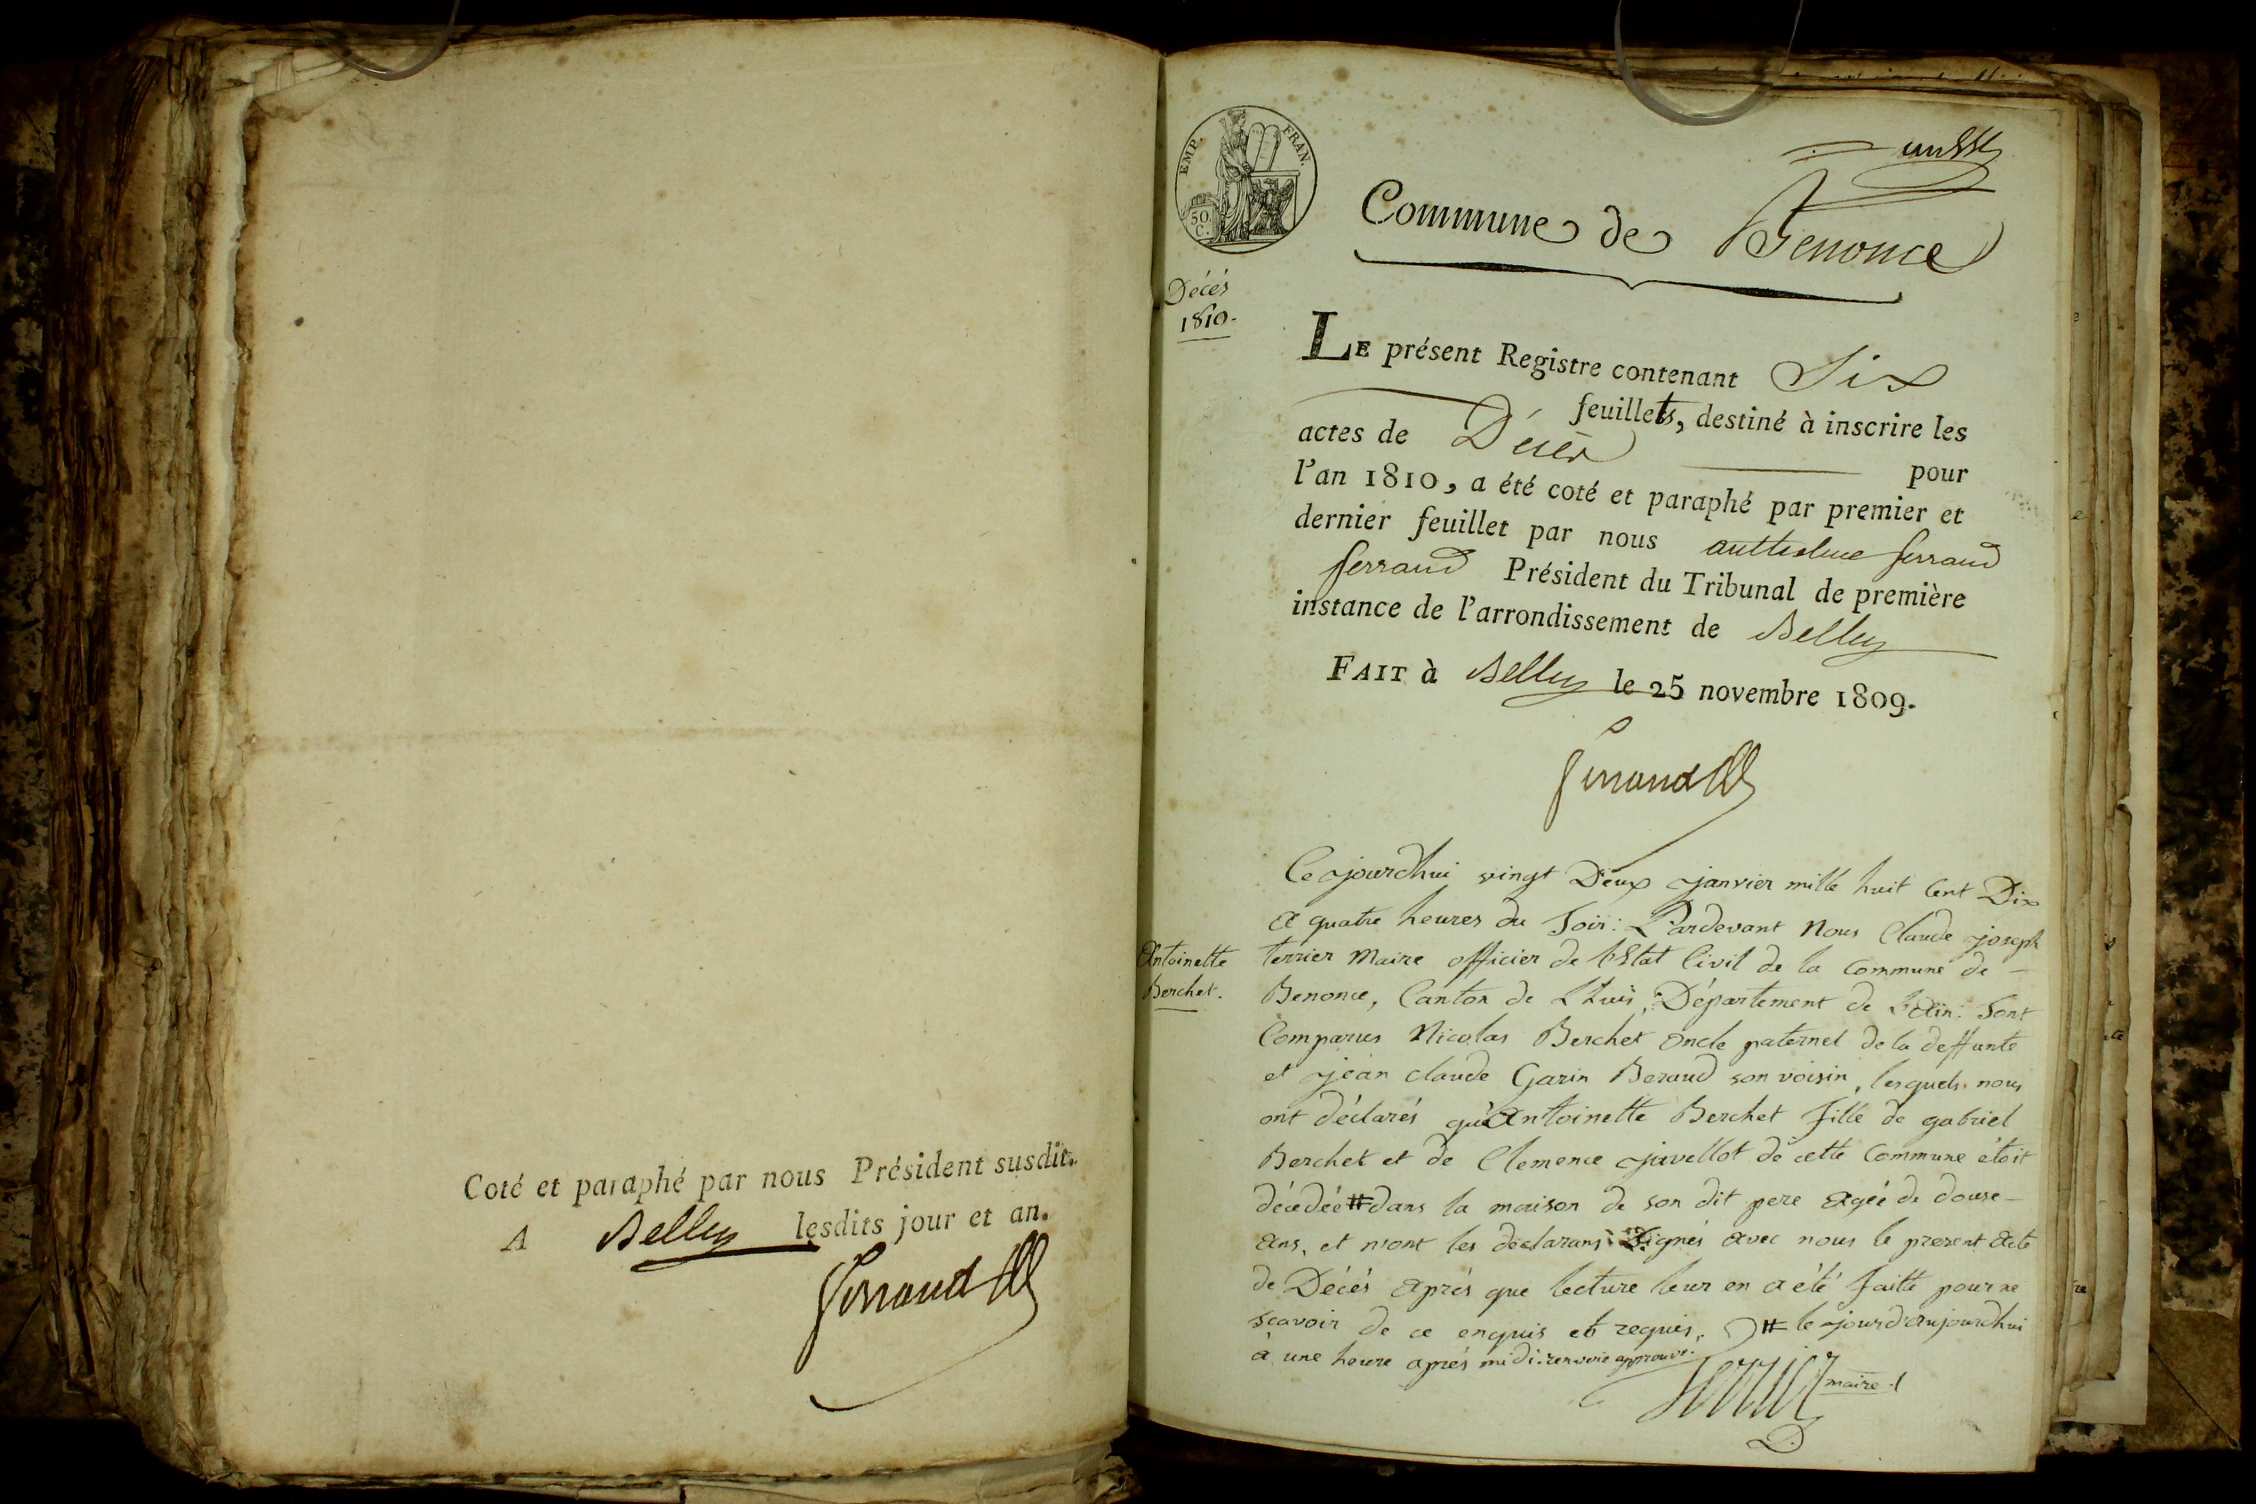 Coté et paraphé par nous Président susdit.
A Belley lesdits jour et an.
Ferrand
EMP. FRAN.
50 C.
Commune de Benonce
Décés
1810.
LE présent Registre contenant Six
feuillets, destiné à inscrire les
actes de Décès pour
l'an 1810, a été coté et paraphé par premier et
dernier feuillet par nous anthelme ferrand
ferrand Président du Tribunal de première
instance de l'arrondissement de Belley
FAIT à Belley le 25 novembre 1809.
Ferrand
Antoinette
Berchet.
Cejourdhui vingt Deux janvier mille huit Cent Dix
a quatre heures du Soir: Pardevant Nous Claude joseph
terrier Maire officier de lEtat Civil de la Commune de
Benonce, Canton de LHuis, Département de Lain: Sont
Comparus Nicolas Berchet oncle paternel de la deffunte
et jean claude Garin Beraud son voisin, lesquels nous
ont déclarés qu'Antoinette Berchet fille de gabriel
Berchet et de Clemence juvellot de cette Commune étoit
décedée # dans la maison de son dit pere agée de douse
ans, et n'ont les déclarans signés avec nous le present acte
de Décés aprés que lecture leur en a été faitte pour ne
scavoir de ce enquis et requis. # le jourd'aujourdhui
à une heure aprés midi: renvoie approuvé.
terrier maire